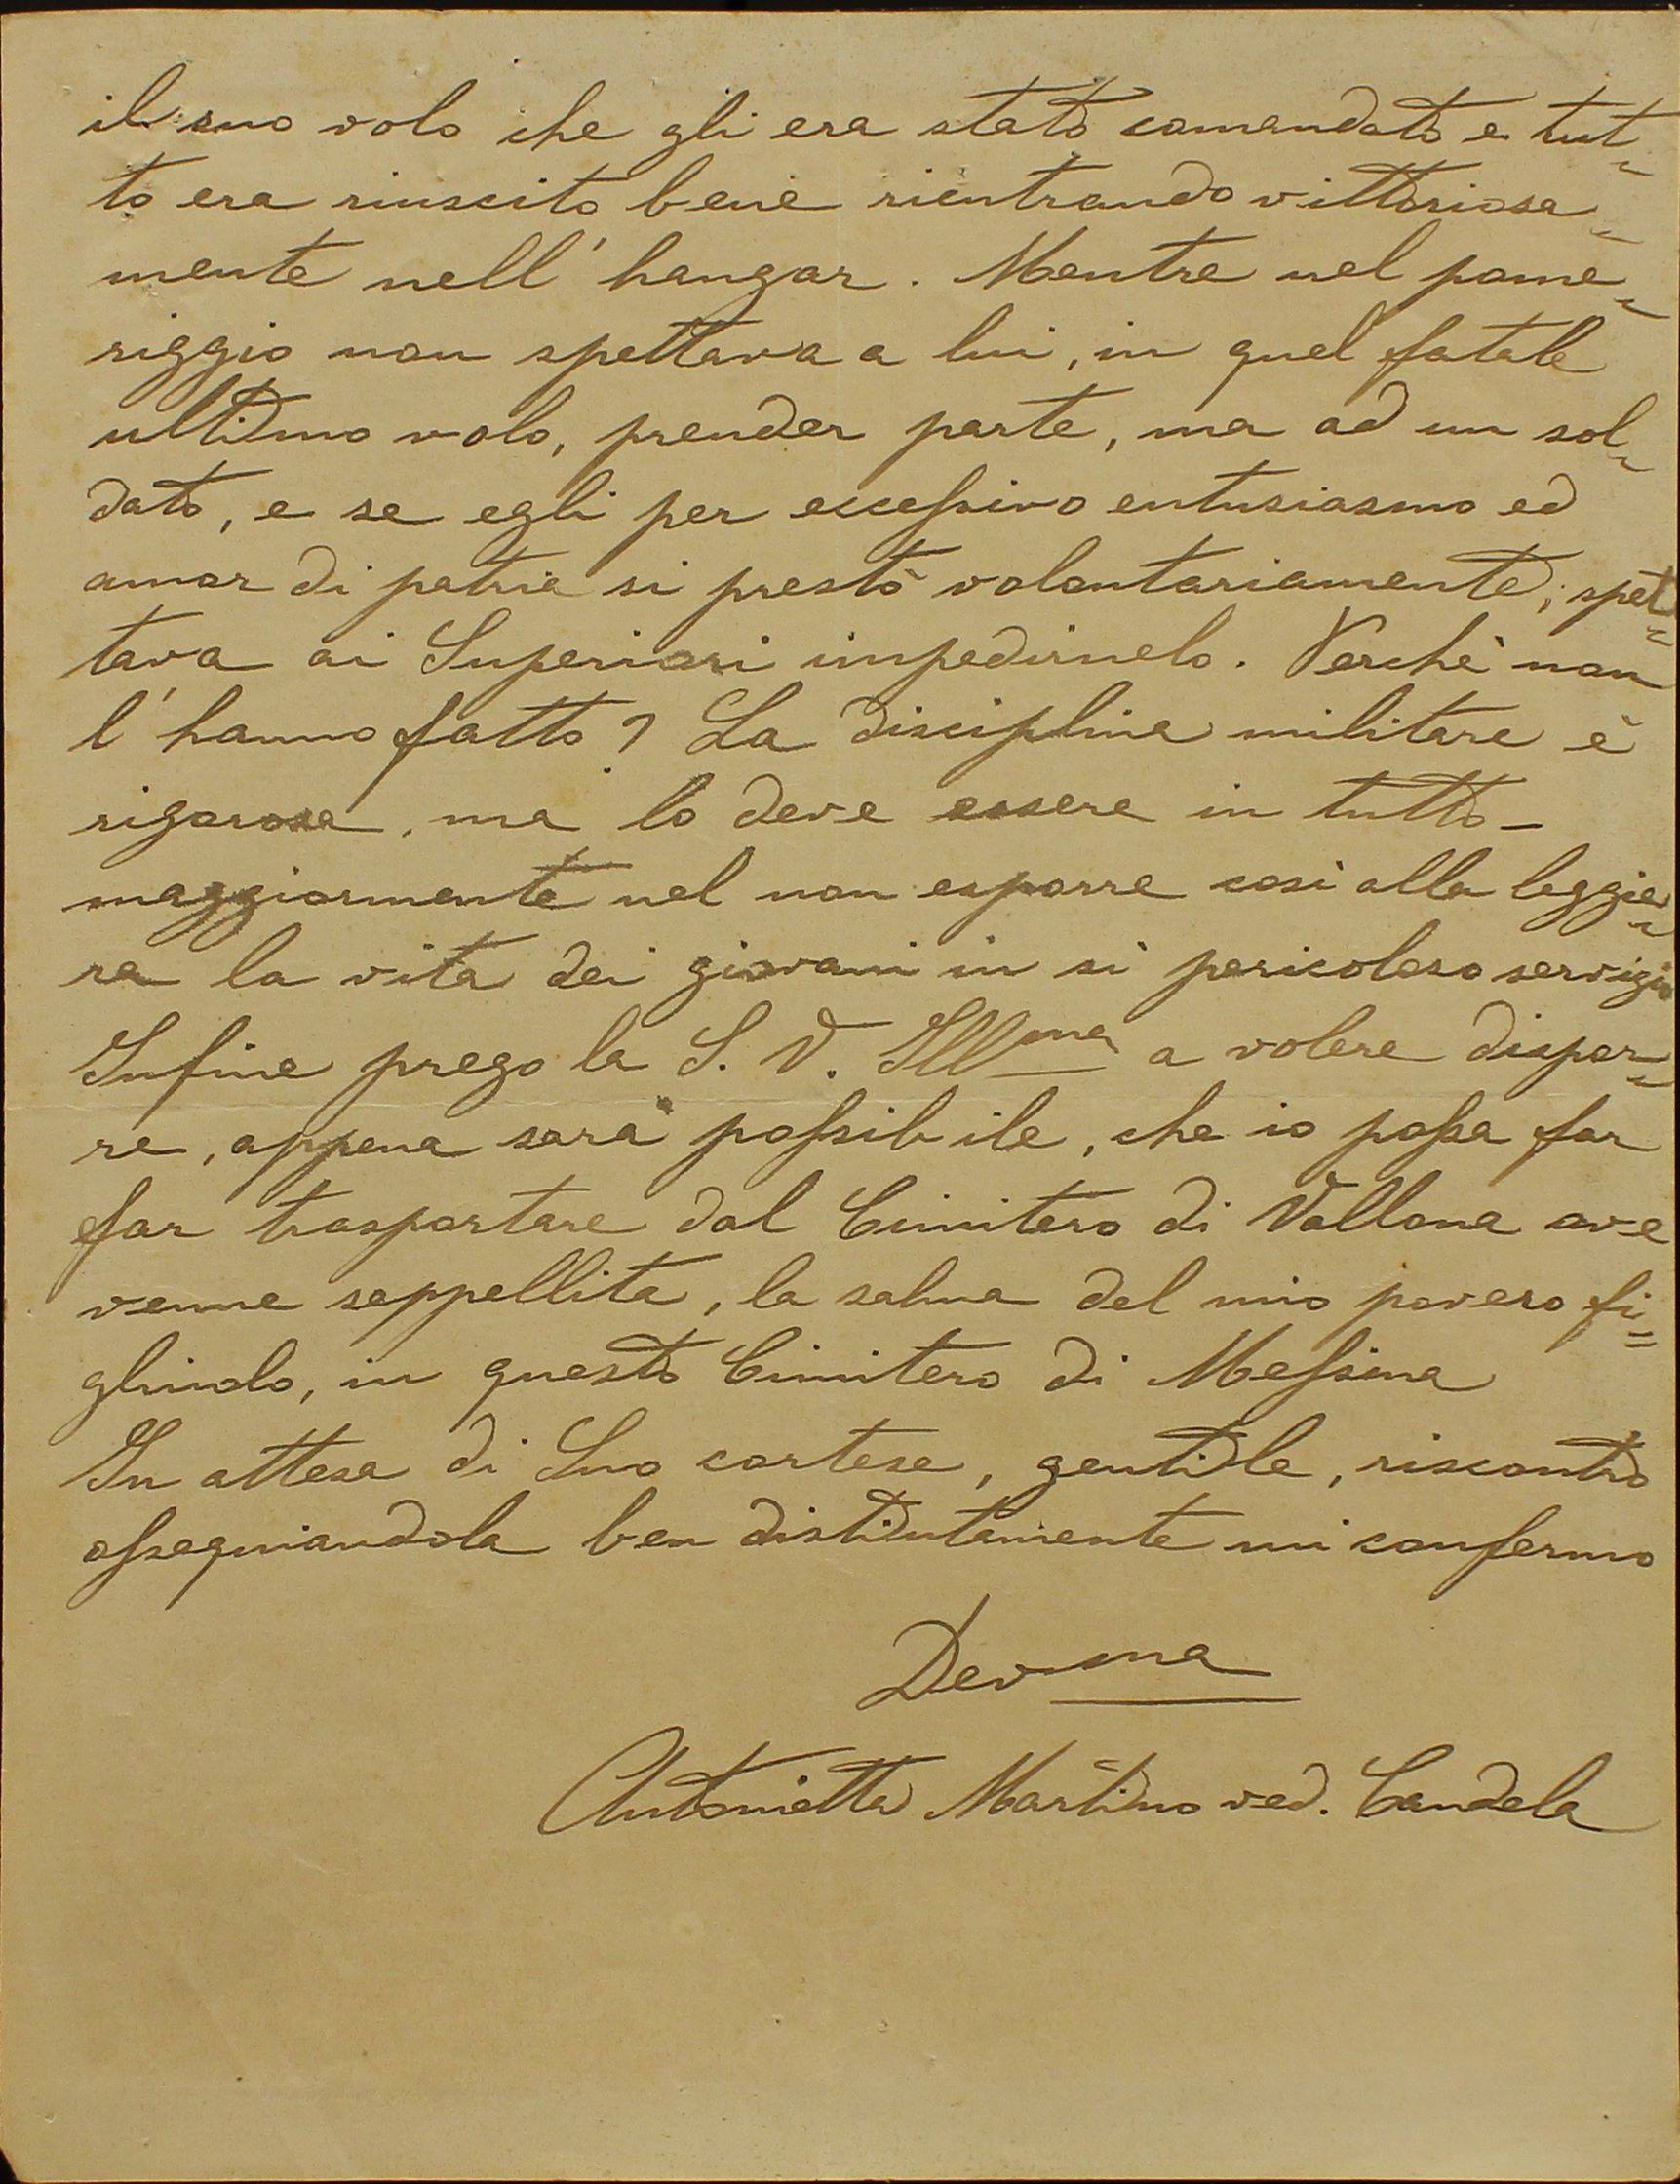 il suo volo che gli era stato comandato e tut=
to era riuscito bene rientrando vittoriosa=
mente nell'hangar. Mentre nel pome=
riggio non spettava a lui, in quel fatale
ultimo volo, prender parte, ma ad un sol=
dato, e se egli per eccessivo entusiasmo ed
amor di patria si prestò volontariamente, spet=
tava ai Superiori impedirnelo. Perchè non
l'hanno fatto? La disciplina militare è
rigorosa, ma lo deve essere in tutto -
maggiormente nel non esporre così alla leggie=
ra la vita dei giovani in sì pericoloso servizio
Infine prego la S. V. Ill^ma a volere dispor=
re, appena sarà possibile, che io possa far
far trasportare dal Cimitero di Vallona ove
venne seppellita, la salma del mio povero fi=
gliuolo, in questo Cimitero di Messina
In attesa di Suo cortese, gentile, riscontro
ossequiandola ben distintamente mi confermo
Dev^ma
Antonietta Martino ved. Candela